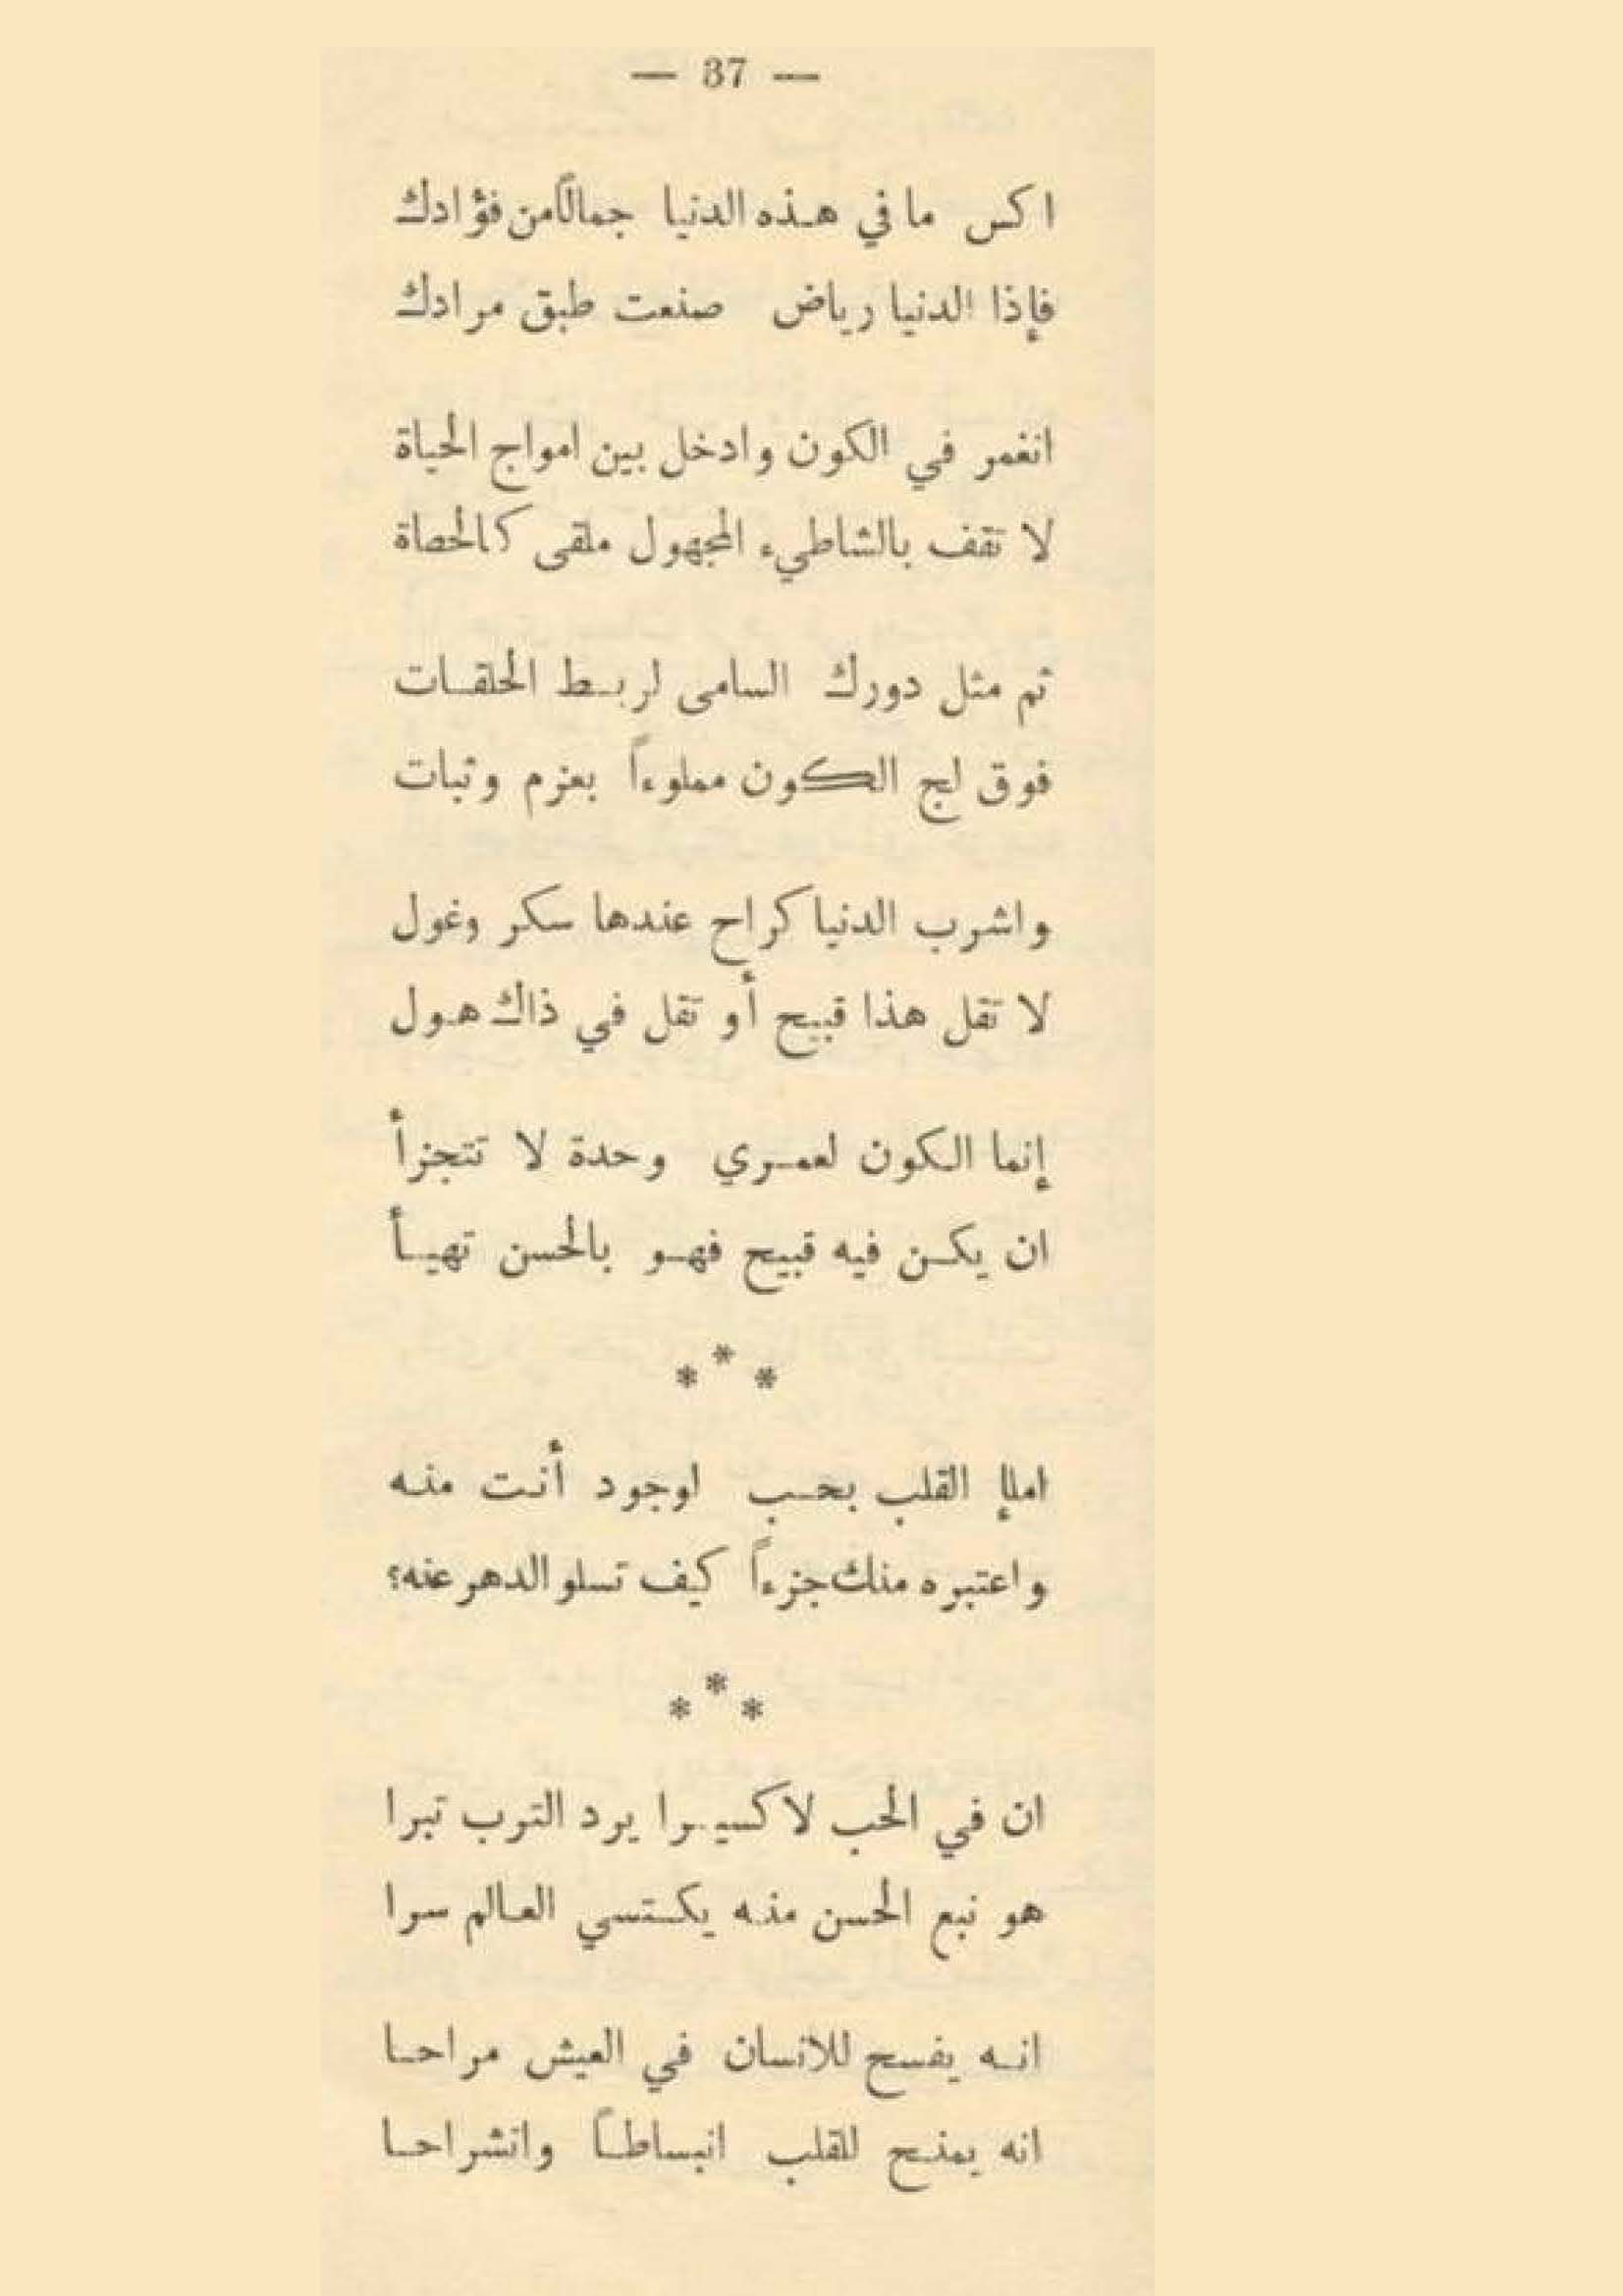 — 37 —
اكس ما في هذه الدنيا جمالاً من فؤادك
فإذا الدنيا رياض صنعت طبق مرادك
انغمر في الكون وادخل بين امواج الحياة
لا تقف بالشاطيء المجهول ملقى كالحصاة
ثم مثل دورك السامى لربط الحلقات
فوق لج الكون مملوءاً بعزم وثبات
واشرب الدنيا كراح عندها سكر وغول
لا تقل هذا قبيح أو تقل في ذاك هول
إنما الكون لعمري وحدة لا تتجزأ
ان يكن فيه قبيح فهو بالحسن تهيأ
* * *
املإ القلب بحب اوجود أنت منه
واعتبره منك جزءاً كيف تسلو الدهر عنه؟
* * *
ان في الحب لاكسيرا يرد الترب تبرا
هو نبع الحسن منه يكتسي العالم سرا
انه يفسح للانسان في العيش مراحا
انه يمنح للقلب انبساطاً وانشراحا